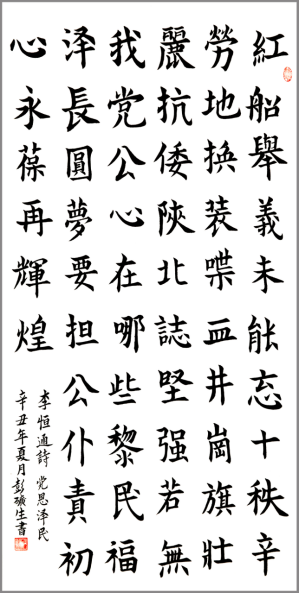 紅船舉義未能忘十秩辛
勞地换装喋血井崗旗壯
麗抗倭陝北誌堅强若無
我党公心在哪些黎民福
泽長圓夢要担公仆責初
心永葆再輝煌
李恒通詩党恩泽民
辛丑年夏月彭礦生書